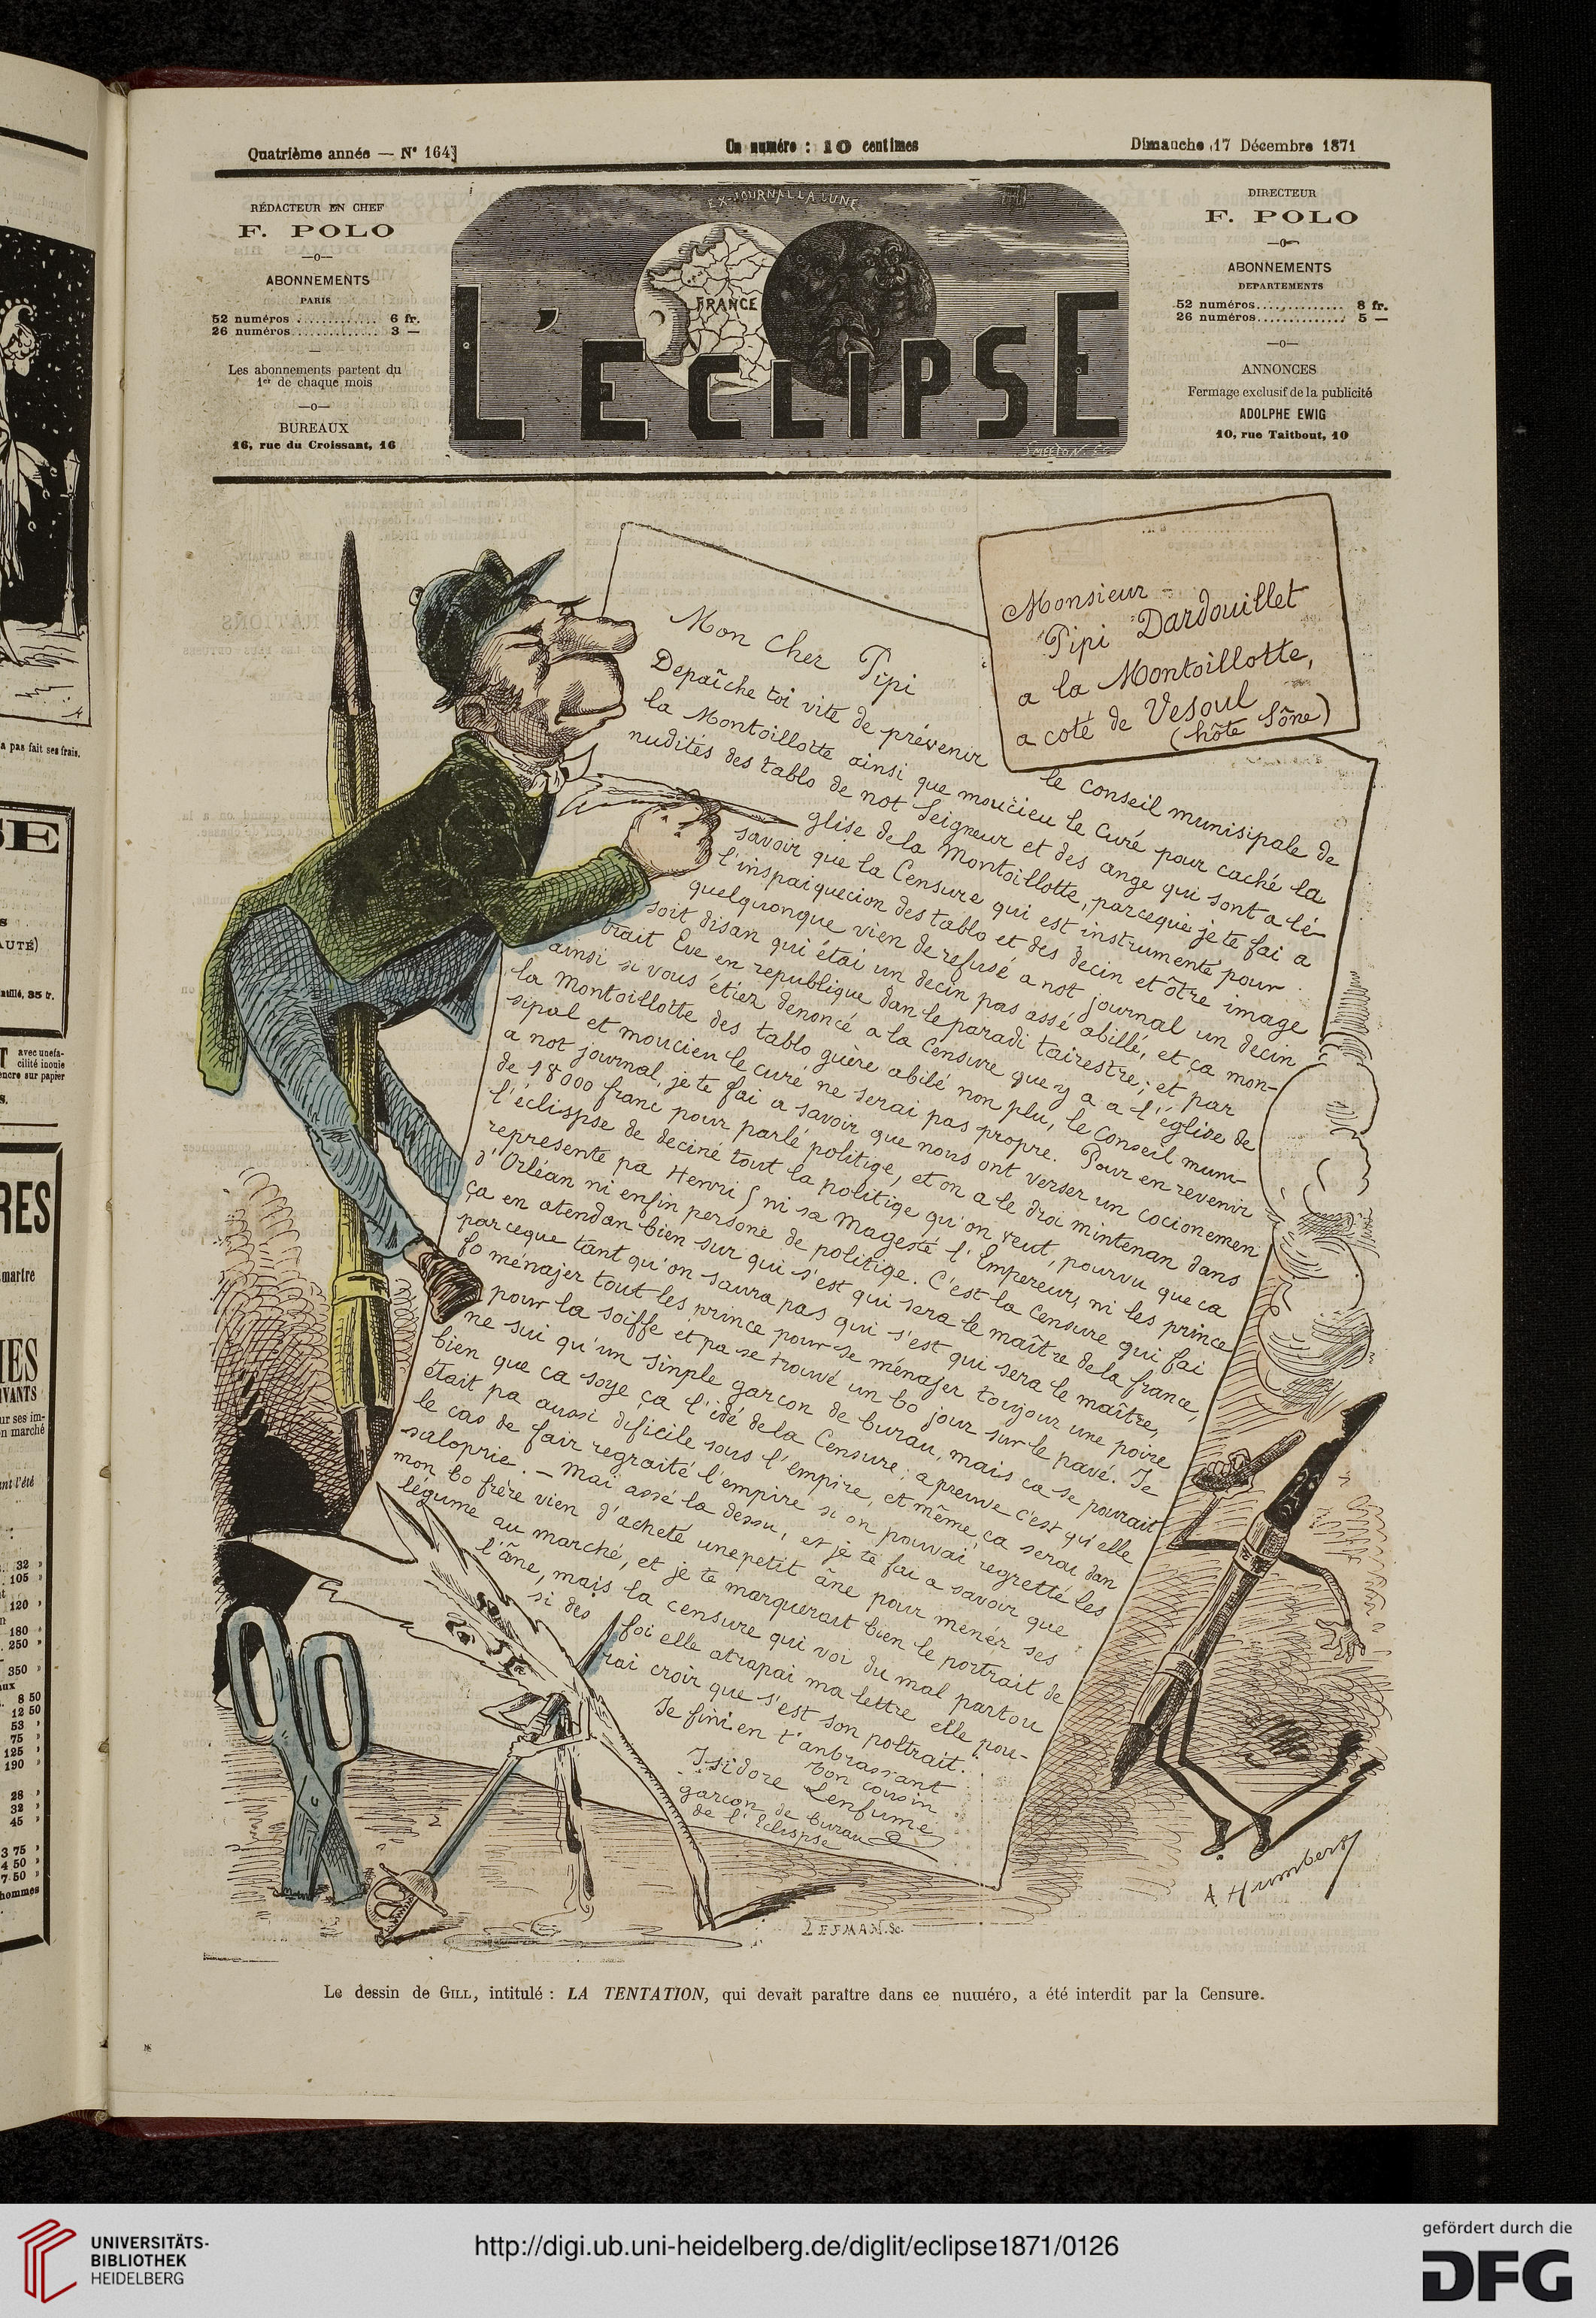 Quatrième année — N° 164
Un numéro : 10 centimes
Dimanche 17 Décembre 1871
RÉDACTEUR EN CHEF
F. POLO
—o—
ABONNEMENTS
PARIS
52 numéros ............ 6 fr.
26 numéros ............ 3 —
—
Les abonnements partent du
1er de chaque mois
—o—
BUREAUX
16, rue du Croissant, 16
EX-JOURNAL LA LUNE
FRANCE
L'ECLIPSE
SMEETON. SC
DIRECTEUR
F. POLO
—o—
ABONNEMENTS
DEPARTEMENTS
52 numéros............ 8 fr.
26 numéros............ 5 —
—o—
ANNONCES
Fermage exclusif de la publicité
ADOLPHE EWIG
10, rue Taitbout, 10
Monsieur
Pipi Dardouillet
a la Montoillotte,
a coté de Vesoul
(hôte Sône)
Mon cher Pipi
Depaîche toi vite de prévenir le conseil munisipale de
la Montoillotte ainsi que moucieu le Curé pour caché la
nudités des tablo de not Seigneur et des ange qui sont a lé-
glise dela Montoillotte, parceque je te fai a
savoir que la Censure qui est instrumenté pour
l'inspaiquecion des tablo et des decin et ôtre image
quelquonque vien de refusé a not journal un decin
soit disan qui étai un decin pas assé abillé, et ça mon-
trait Eve en republique dan le paradi tairestre; et par
ainsi si vous étiez denoncé a la Censure que y a a l'église de
la Montoillotte des tablo guère abilé non plu, le Conseil muni-
sipal et moucieu le curé ne serai pas propre. Pour en revenir
a not journal, je te fai a savoir que nous ont verser un cocionemen
de 18000 franc pour parlé politige, et on a le droi mintenan dans
l'éclispse de deciné tout la politige qu'on veut, pourvu que ca
represente pa Henri 5 ni sa Magesté l'Empereur, ni les prince
d'Orléan ni enfin persone de politige. C'est la Censure qui fai
ça en atendan bien sur qui s'est qui sera le maître dela france,
parceque tant qu'on saura pas qui s'est qui sera le maître,
fo ménajer tout les prince pour se ménajer toujour une poire
pour la soiffe et pa se trouvé un bo jour sur le pavé. Je
ne sui qu'un sinple garcon de burau, mais ca se pourait
bien que ca soye ça l'idé dela Censure; a preuve c'est qu'elle
était pa aussi dificile sous l'empire, et même ça serai dan
le cas de fair regraité l'empire si on pouvai regretté les
saloprie. — Mai assé la dessu, et je te fai a savoir que
mon bo frère vien d'acheté une petit âne pour menér ses
légume au marché, et je te marquerait bien le portrait de
l'âne, mais la censure qui voi du mal partou
si des foi elle atrapai ma lettre elle pou-
rai croir que s'est son poltrait.
Je fini en t'anbrassant
ton cousin
Isidore Lenfumé
garcon de burau
de l'Eclispse
A Humbert
LEFMAN. Sc.
Le dessin de GILL, intitulé : LA TENTATION, qui devait paraître dans ce numéro, a été interdit par la Censure.
a pas fait ses frais.
UNIVERSITÄTS-
BIBLIOTHEK
HEIDELBERG
http://digi.ub.uni-heidelberg.de/diglit/eclipse1871/0126
gefördert durch die
DFG